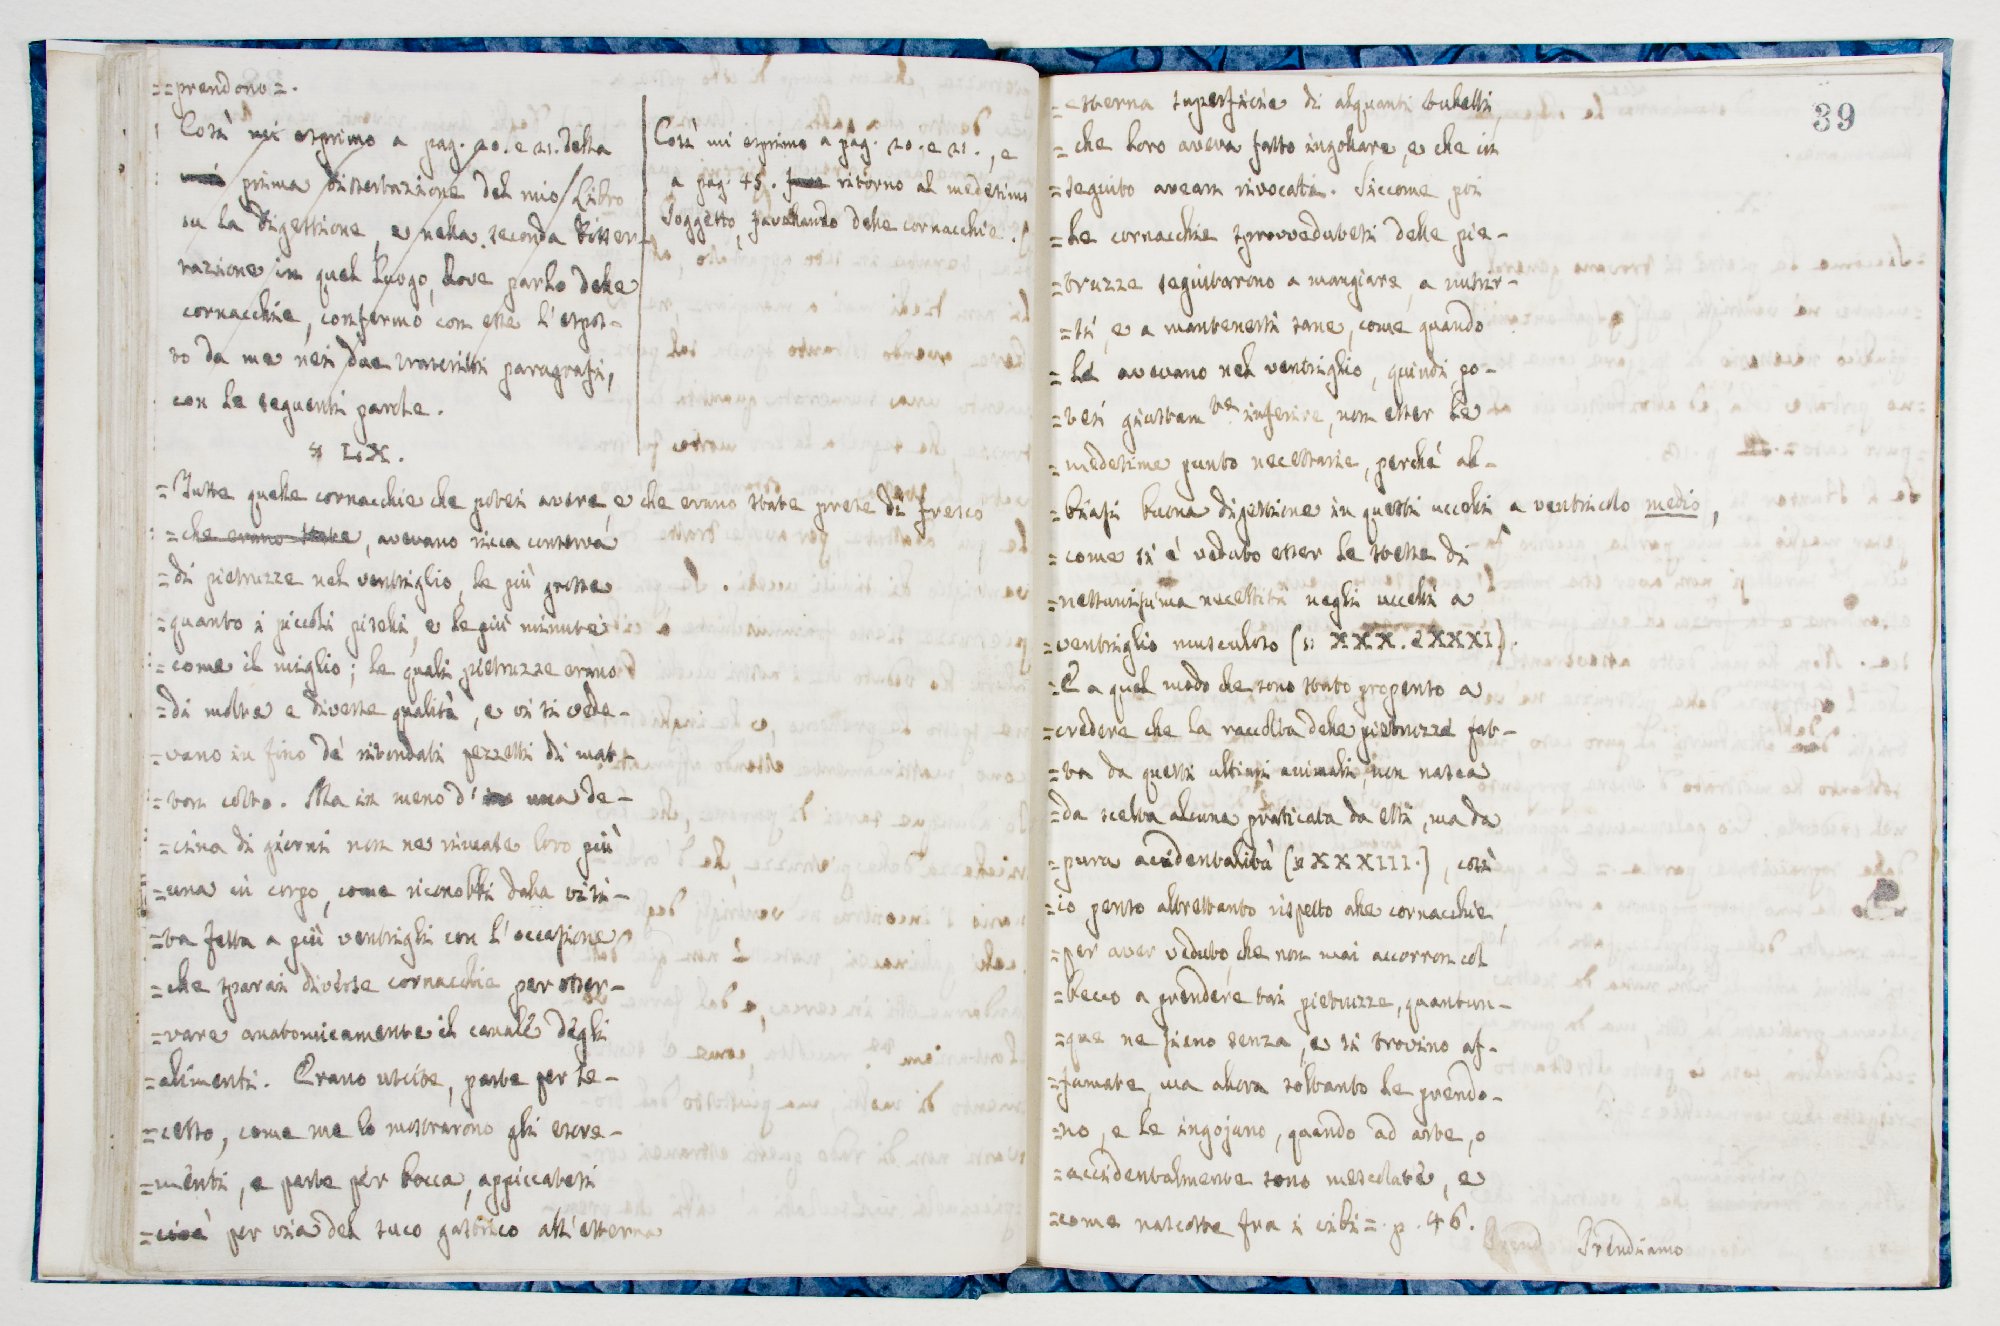 ==prendono=.
Così mi esprimo a pag. 20. e 21. della
mia prima dissertazione del mio Libro
su la digestione, e nella seconda disser-
tazione in quel luogo, dove parlo delle
cornacchie, confermo con esse l'espos-
to da me nei due trascritti paragrafi,
con le seguenti parole.
§ LX.
Così mi esprimo a pag. 20. e 21., e
a pag. 45. ritorno al medesimo
soggetto, favellando delle cornacchie.
=Tutte quelle cornacchie che potei avere, e che erano state prese di fresco
=che erano state, avevano ricca conserva
=di pietruzze nel ventriglio, le più grosse
=quanto i piccoli piselli, e le più minute
=come il miglio; le quali pietruzze erano
=di molte e diverse qualità, e vi si vede-
=vano in fino de' ritondati pezzetti di mat-
=ton cotto. Ma in meno d' una de-
=cina di giorni non ne rimase loro più
=una in corpo, come riconobbi dalla visi-
=ta fatta a più ventrigli con l'occasione
=che sparai diverse cornacchie per osser-
=vare anatomicamente il canale degli
=alimenti. Erano uscite, parte per se-
=cesso, come me lo mostrarono gli escre-
=menti, e parte per bocca, appiccatesi
=cioè per via del suco gastrico all'esterna
39
=esterna superficie di alquanti tubetti,
=che loro aveva fatto ingollare, e che in
=seguito avean rivocati. Siccome poi
=le cornacchie sprovvedutesi delle pie-
=truzze seguitarono a mangiare, a nutrir-
=si, e a mantenersi sane, come quando
=le avevano nel ventriglio, quindi po-
=tei giustamte. inferire, non esser le
=medesime punto necessarie, perché ab-
=biasi buona digestione in questi uccelli a ventricolo medio,
=come si è veduto esser le stesse di
=nessunissima necessità negli uccelli a
=ventriglio muscoloso (§ XXX. e XXXI).
=E a quel modo che sono stato propenso a
=credere che la raccolta delle pietruzze fat-
=ta da questi ultimi animali, non nasca
=da scelta alcuna praticata da essi, ma da
=pura accidentalità (§ XXXIII.), così
=io penso altrettanto rispetto alle cornacchie,
=per aver veduto, che non mai accorron col
=becco a prendere tai pietruzze, quantun-
=que ne sieno senza, e si trovino af-
=famate, ma allora soltanto le prendo-
=no, e le ingojano, quando ad arte, o
=accidentalmente sono mescolate, e
=come nascoste fra i cibi=. p. 46.
Prend Prendiamo